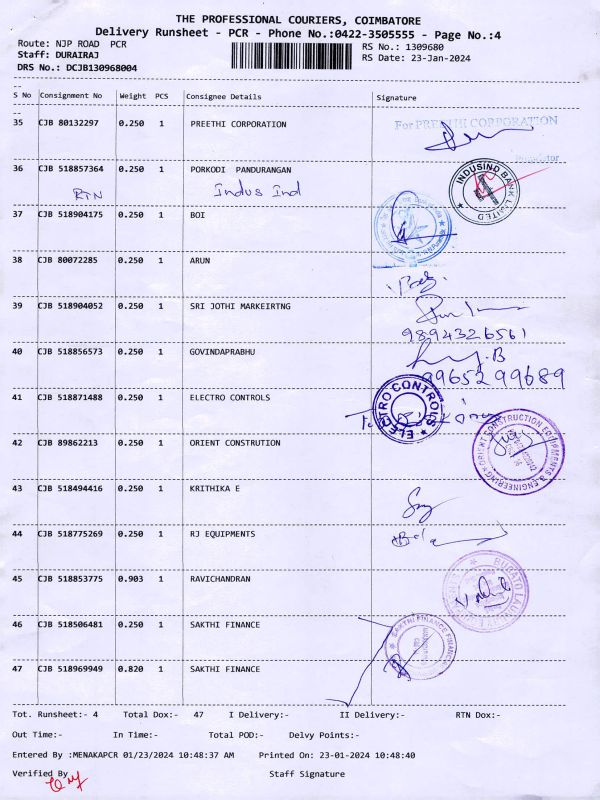 THE PROFESSIONAL COURIERS, COIMBATORE
Delivery Runsheet - PCR - Phone No.:0422-3505555 - Page No.:4
Route: NJP ROAD PCR
RS No.: 1309680
Staff: DURAIRAJ
RS Date: 23-Jan-2024
DRS No.: DCJB130968004
--
S No Consignment No Weight PCS Consignee Details Signature
--
35 CJB 80132297 0.250 1 PREETHI CORPORATION
For PREETHI CORPORATION
36 CJB 518857364 0.250 1 PORKODI PANDURANGAN
RTN Indus Ind
INDUSIND BANK LIMITED
37 CJB 518904175 0.250 1 BOI
38 CJB 80072285 0.250 1 ARUN
39 CJB 518904052 0.250 1 SRI JOTHI MARKEIRTNG
9894326561
40 CJB 518856573 0.250 1 GOVINDAPRABHU
9965299689
41 CJB 518871488 0.250 1 ELECTRO CONTROLS
ELECTRO CONTROLS
42 CJB 89862213 0.250 1 ORIENT CONSTRUTION
ORIENT CONSTRUCTION EQUIPMENTS & ENGINEERING
43 CJB 518494416 0.250 1 KRITHIKA E
44 CJB 518775269 0.250 1 RJ EQUIPMENTS
45 CJB 518853775 0.903 1 RAVICHANDRAN
46 CJB 518506481 0.250 1 SAKTHI FINANCE
SAKTHI FINANCE FINANCIAL
47 CJB 518969949 0.820 1 SAKTHI FINANCE
Tot. Runsheet:- 4 Total Dox:- 47 I Delivery:- II Delivery:- RTN Dox:-
Out Time:- In Time:- Total POD:- Delvy Points:-
Entered By :MENAKAPCR 01/23/2024 10:48:37 AM Printed On: 23-01-2024 10:48:40
Verified By Staff Signature